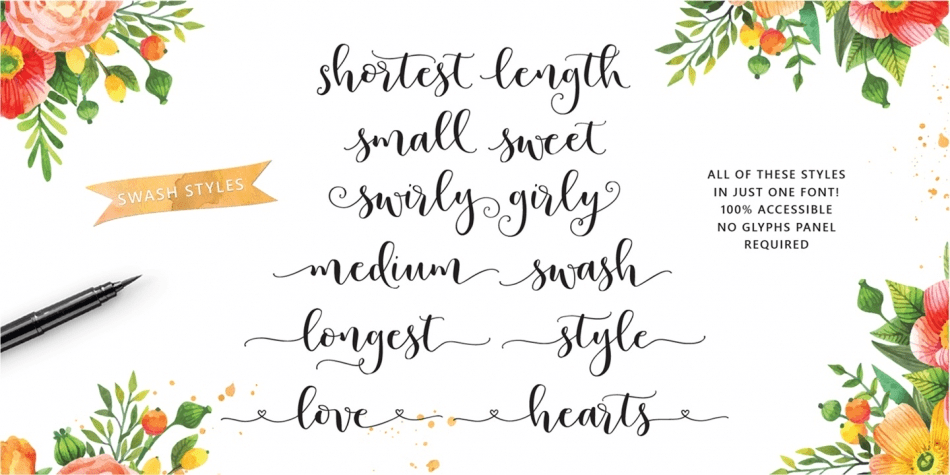 shortest length
small sweet
swirly girly
medium swash
longest style
love hearts
SWASH STYLES
ALL OF THESE STYLES
IN JUST ONE FONT!
100% ACCESSIBLE
NO GLYPHS PANEL
REQUIRED